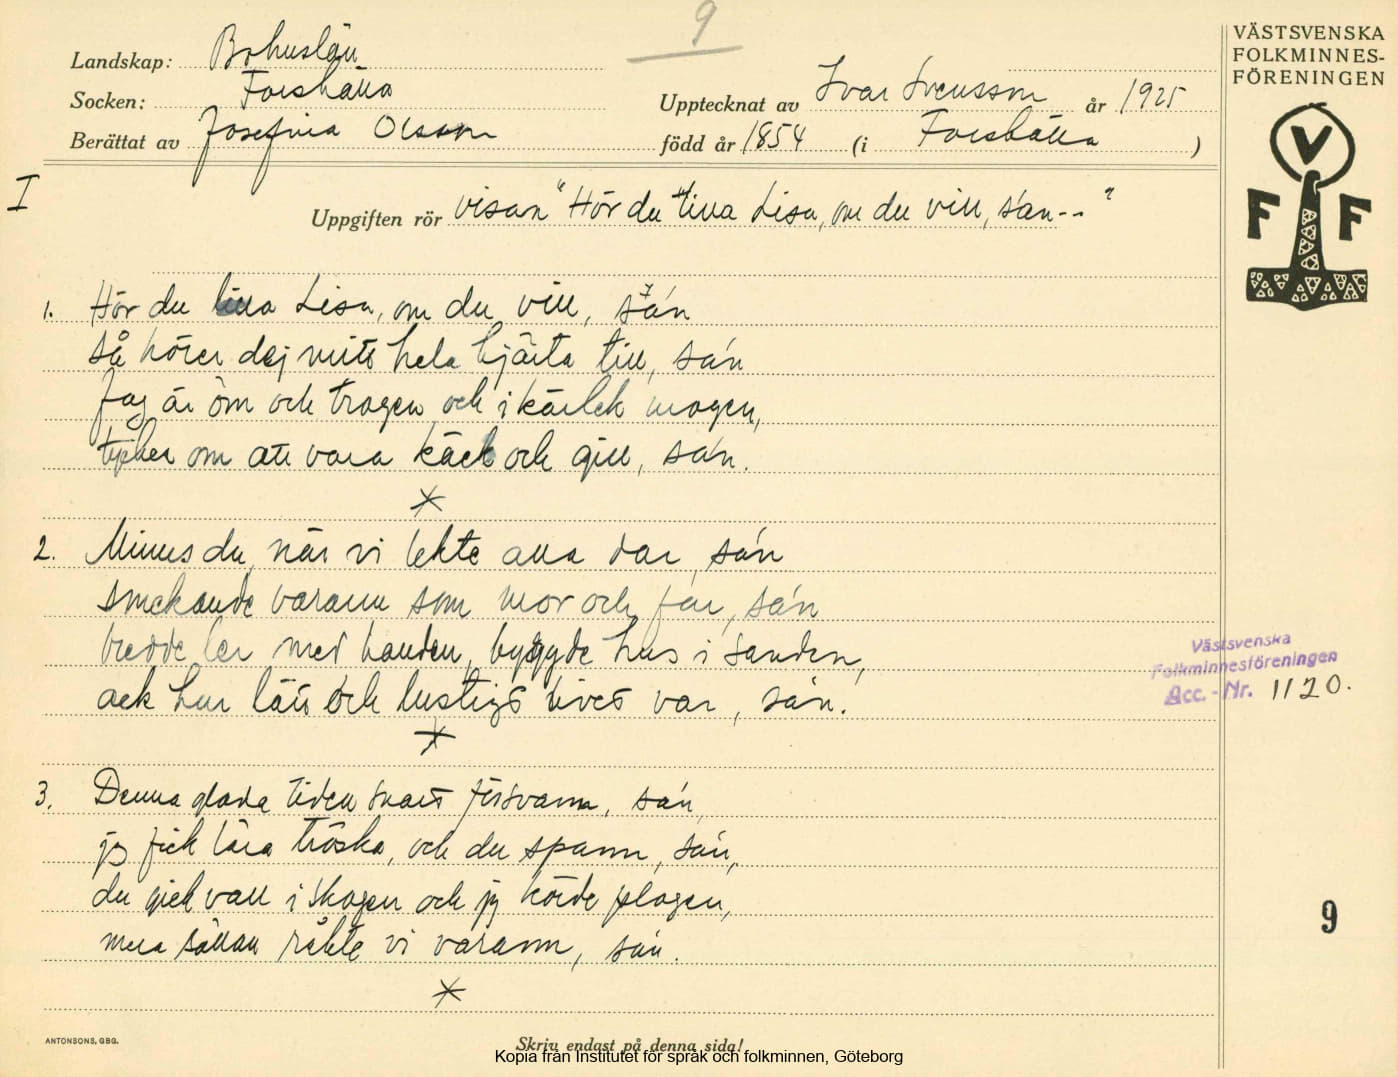 9
VÄSTSVENSKA
FOLKMINNES-
FÖRENINGEN
V
F F
Landskap: Bohuslän
Socken: Forshälla
Upptecknat av Ivar Svensson år 1925
Berättat av Josefina Olsson född år 1854 (i Forshälla )
I
Uppgiften rör visan "Hör du lilla Lisa, om du vill, sa'n--"
1. Hör du lilla Lisa, om du vill, sa'n
så hörer dej mitt hela hjärta till, sa'n
Jag är öm och trogen och i kärlek mogen,
tycker om att vara käck och gill, sa'n.
2. Minns du, när vi lekte alla dar, sa'n
smekande varann som mor och far, sa'n
bredde ler med handen, byggde hus i sanden,
ack hur lätt och lustigt livet var, sa'n.
Västsvenska
Folkminnesföreningen
Acc.-Nr. 1120.
3. Denna glada tiden snart försvann, sa'n,
jg fick lära tröska, och du spann, sa'n,
du gick vall i skogen och jg körde plogen,
mera sällan råkte vi varann, sa'n.
9
ANTONSONS, GBG.
Skriv endast på denna sida!
Kopia från Institutet för språk och folkminnen, Göteborg